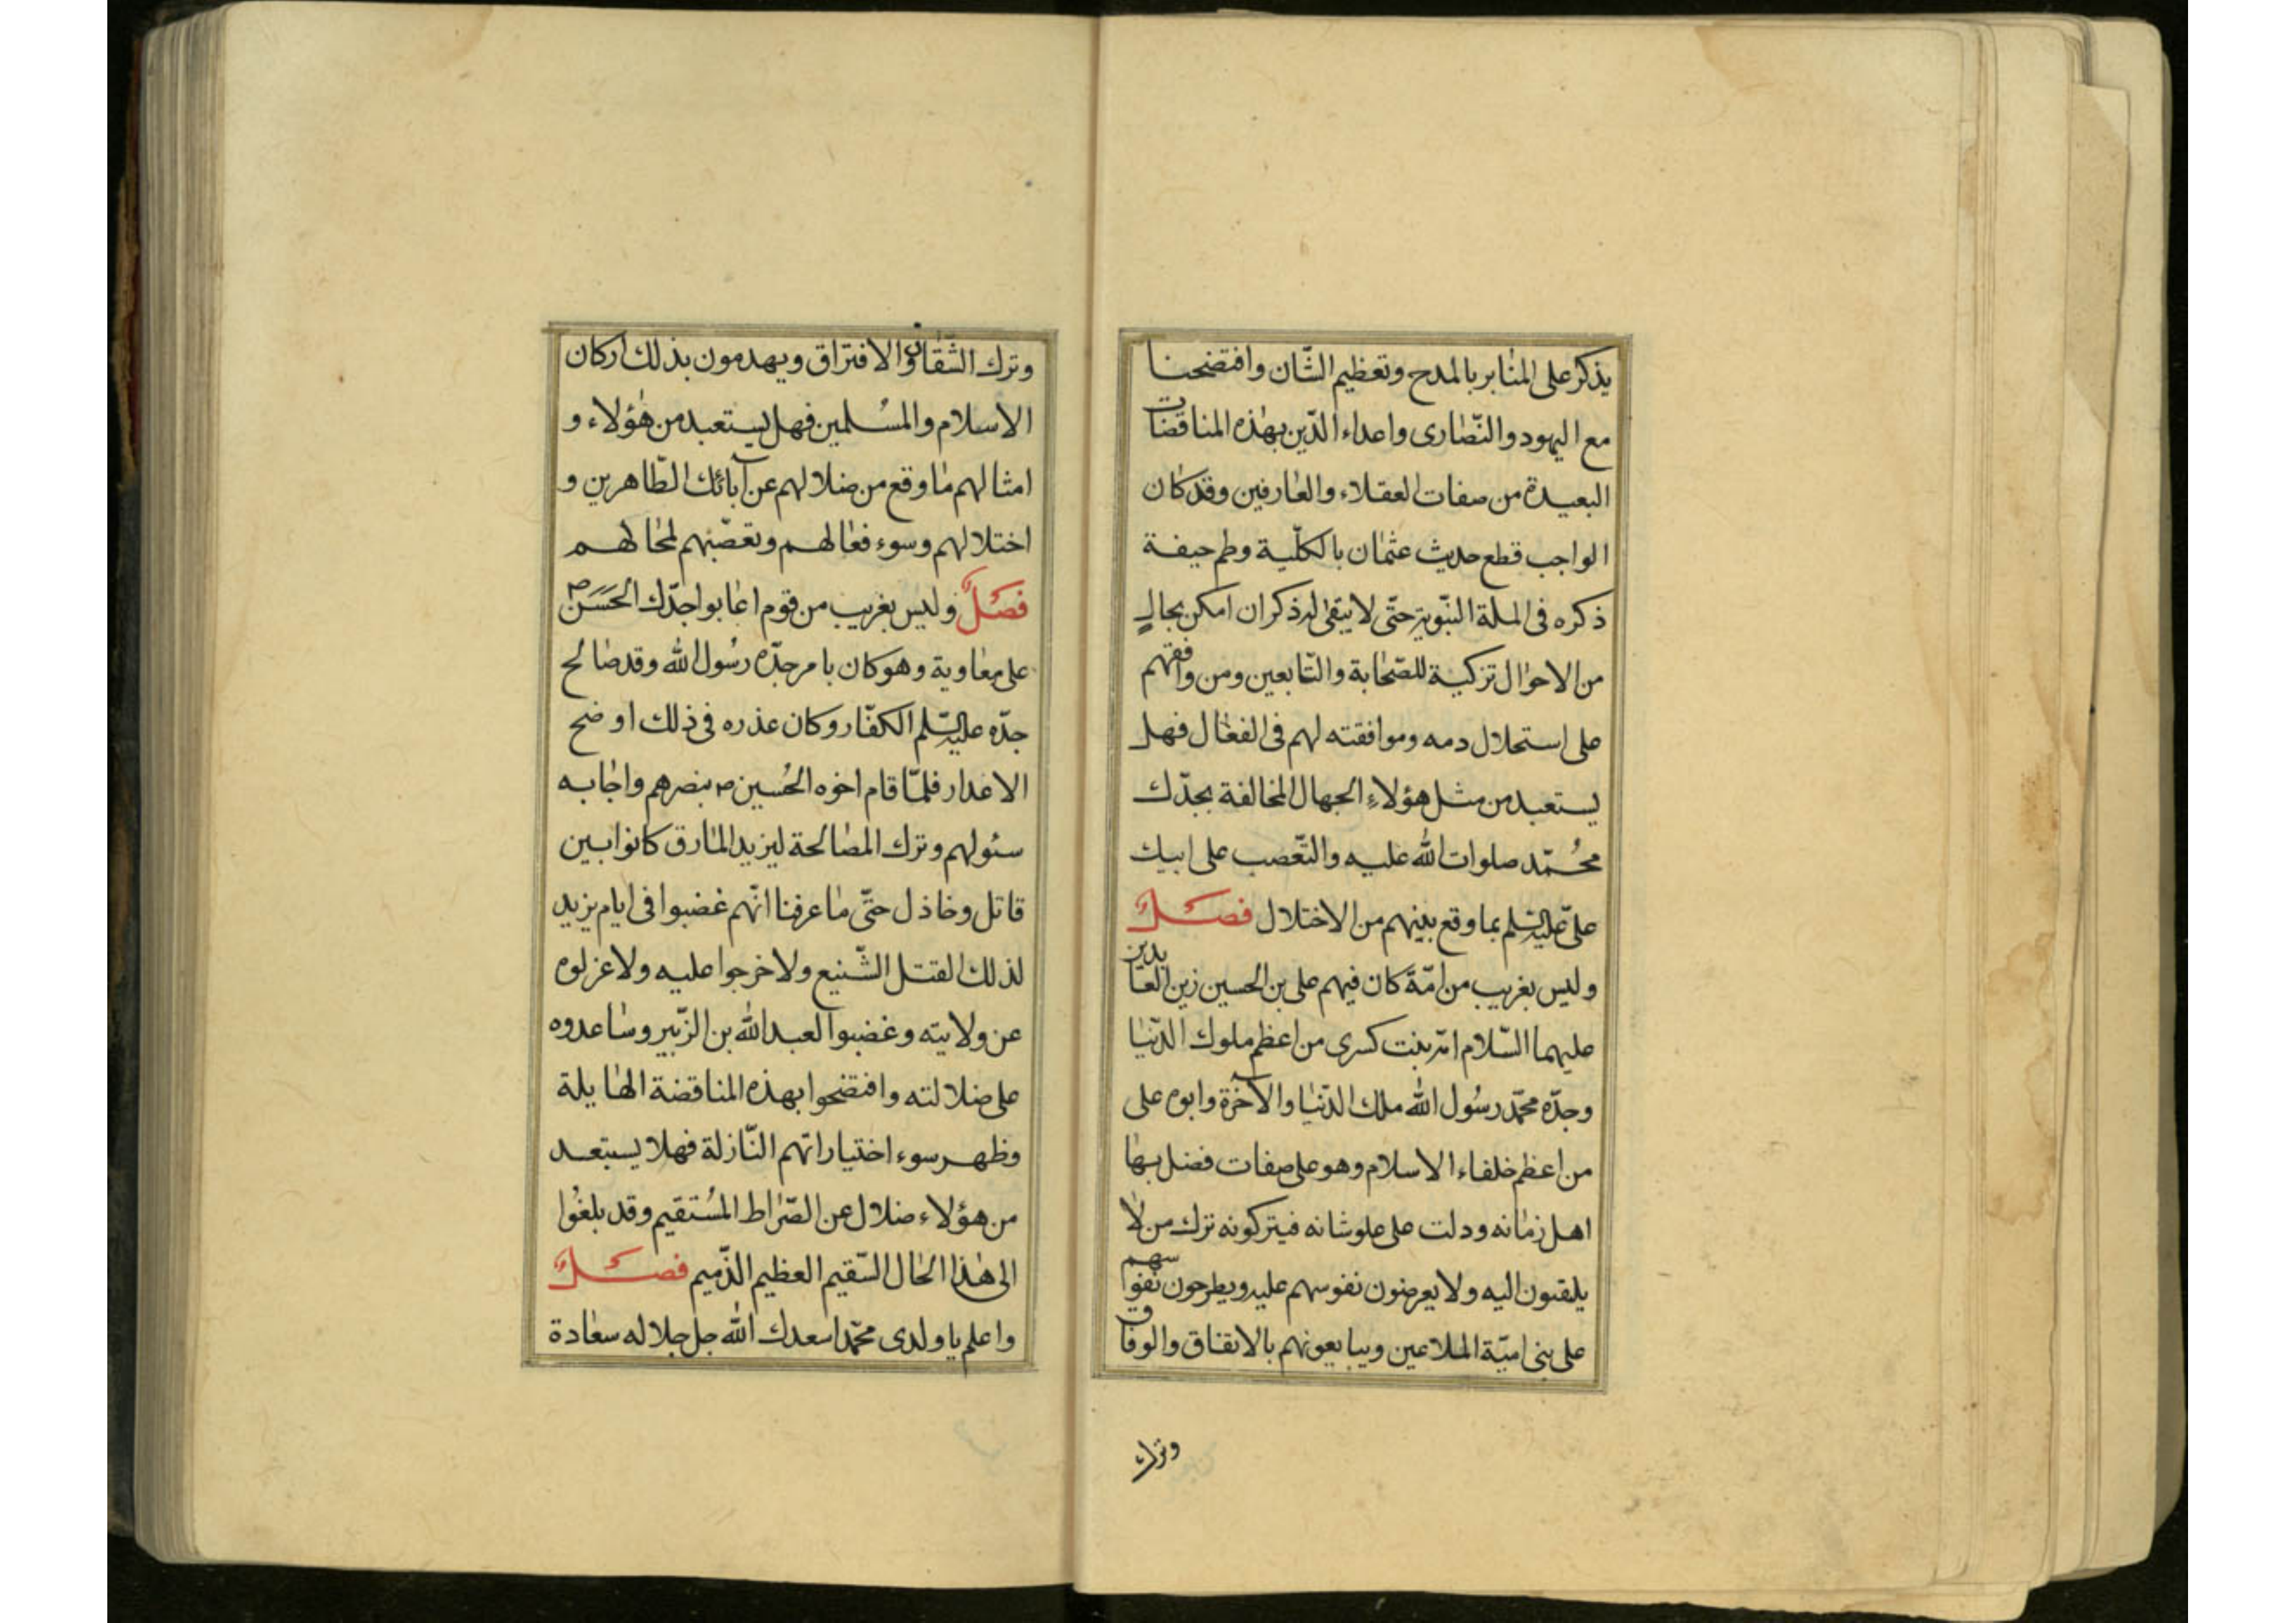 يذكر على المنابر بالمدح وتعظيم الشّان وافتضحنا
مع اليهود والنّصارى واعداء الدّين بهذه المناقضات
البعيدة من صفات العقلاء والعارفين وقد كان
الواجب قطع حديث عثمان بالكلّية وطم جيفة
ذكره فى الملة النّبوية حتّى لا يبقى له ذكر ان امكن بحال
من الاحوال تزكية للصّحابة والتّابعين ومن وافقهم
على استحلال دمه وموافقته لهم فى الفعال فهل
يستعبد من مثل هؤلاءِ الجهال المخالفة بجدّك
محُمّد صلوات الله عليه والتّعصب على ابيك
علىّ عليه السّلم بما وقع بينهم من الاختلال فصلٌ
وليس بغريب من امّة كان فيهم على بن الحسين زين العابدين
عليهما السّلام امّه بنت كسرى من اعظم ملوك الدّنيا
وجدّه محمّد رسُول الله ملك الدّنيا والآخرة وابوه على
من اعظم خلفاء الاسلام وهو على صفات فضل بها
اهل زمانه ودلت على علو شانه فيتركونه ترك من لا
يلتفتون اليه ولا يعرضون نفوسهم عليه ويطرحون نفوسهم
على بنى اميّة الملاعين ويبايعونهم بالاتفاق والوفاق
وترك
وترك الشّقاق والافتراق ويهدمون بذلك اركان
الاسلام والمسُلمين فهل يستعبد من هٰؤلاء و
امثالهم ما وقع من ضلالهم عن آبائك الطّاهرين و
اختلالهم وسوء فعالهم وتعصّبهم لمحالهم
فصَلٌ وليس بغريب من قوم اعابوا جدّك الحَسَن ص
على معاوية وهو كان بامر جدّه رسُول الله وقد صالح
جدّه عليه السّلم الكفّار وكان عذره فى ذلك اوضح
الاعذار فلمّا قام اخوه الحُسين ص بنصرهم واجابه
سئولهم وترك المصالحة ليزيد المارق كانوا بين
قاتل وخاذل حتّى ما عرفنا انّهم غضبوا فى ايام يزيد
لذلك القتل الشّنيع ولا خرجوا عليه ولا عزلوه
عن ولايته وغضبوا لعبد الله بن الزّبير وساعدوه
على ضلالته وافتضحوا بهذه المناقضة الهايلة
وظهر سوء اختياراتهم النّازلة فهلا يستبعد
من هؤلاء ضلال عن الصّراط المسُتقيم وقد بلغُوا
الى هٰذا الحال السّقيم العظيم الذّميم فصلٌ
واعلم يا ولدى محمّد اسعدك الله جل جلاله سعادة